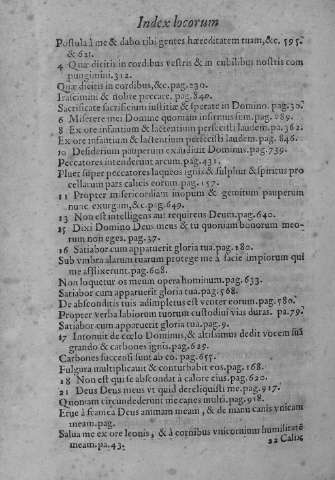 Index locorum
Postula à me & dabo tibi gentes hæreditatem tuam, &c. 595.
& 621.
4 Quæ dicitis in cordibus vestris & in cubilibus vostris com
pungimini. 312.
Quæ dicitis in cordibus, &c. pag. 230.
Irascimini & nolite peccare. pag. 840.
Sacrificate sacrificium iustitiæ & sperate in Domino. pag. 30.
6 Miserere mei Domine quoniam infirmus sum. pag. 289.
8 Ex ore infantium & lactentium perfecisti laudem. pa. 362.
Ex ore infantium & lactentium perfecisti laudem. pag. 846.
10 Desiderium pauperum exaudiuit Dominus. pag. 739.
Peccatores intenderunt arcum. pag. 431.
Pluet super peccatores laqueos ignis & sulphur & spiritus pro
cellarum pars calicis eorum. pag. 157.
11 Propter misericordiam inopum & gemitum pauperum
nunc exurgam, &c. pag. 649.
13 Non est intelligens aut requirens Deum. pag. 640.
15 Dixi Domino Deus meus & tu quoniam bonorum meo-
rum non eges. pag. 37.
16 Satiabor cum apparuerit gloria tua. pag. 180.
Sub vmbra alarum tuarum protege me à facie impiorum qui
me afflixerunt. pag. 608.
Non loquetur os meum opera hominum. pag. 633.
Satiabor cum apparuerit gloria tua. pag. 568.
De absconditis tuis adimpletus est venter eorum. pag. 580.
Propter verba labiorum tuorum custodiui vias duras. pa. 79.
Satiabor cum apparuerit gloria tua. pag. 9.
17 Intonuit de cœlo Dominus, & altissimus dedit vocem suā
grando & carbones ignis. pag. 625.
Carbones succensi sunt ab eo. pag. 655.
Fulgura multiplicauit & conturbabit eos. pag. 168.
18 Non est qui se abscondat à calore eius. pag. 620.
21 Deus Deus meus vt quid dereliquisti me. pag. 917.
Quoniam circundederunt me canes multi. pag. 918.
Erue à framea Deus animam meam, & de manu canis vnicam
meam. pag.
Salua me ex ore leonis, & à cornibus vnicornium humilitatē
meam. pa. 43.
22 Calix